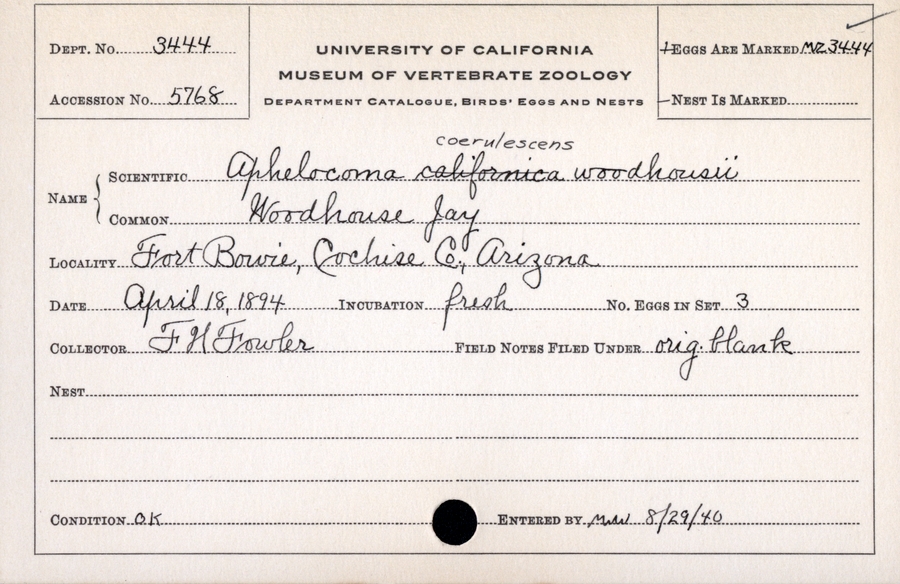 DEPT. No. 3444
ACCESSION No. 5768
UNIVERSITY OF CALIFORNIA
MUSEUM OF VERTEBRATE ZOOLOGY
DEPARTMENT CATALOGUE, BIRDS' EGGS AND NESTS
EGGS ARE MARKED MVZ3444
NEST IS MARKED
coerulescens
NAME SCIENTIFIC Aphelocoma californica woodhousii
COMMON Woodhouse Jay
LOCALITY Fort Bowie, Cochise Co., Arizona
DATE April 18, 1894 INCUBATION fresh No. EGGS IN SET 3
COLLECTOR F H Fowler FIELD NOTES FILED UNDER orig. blank
NEST
CONDITION OK ENTERED BY 8/29/40